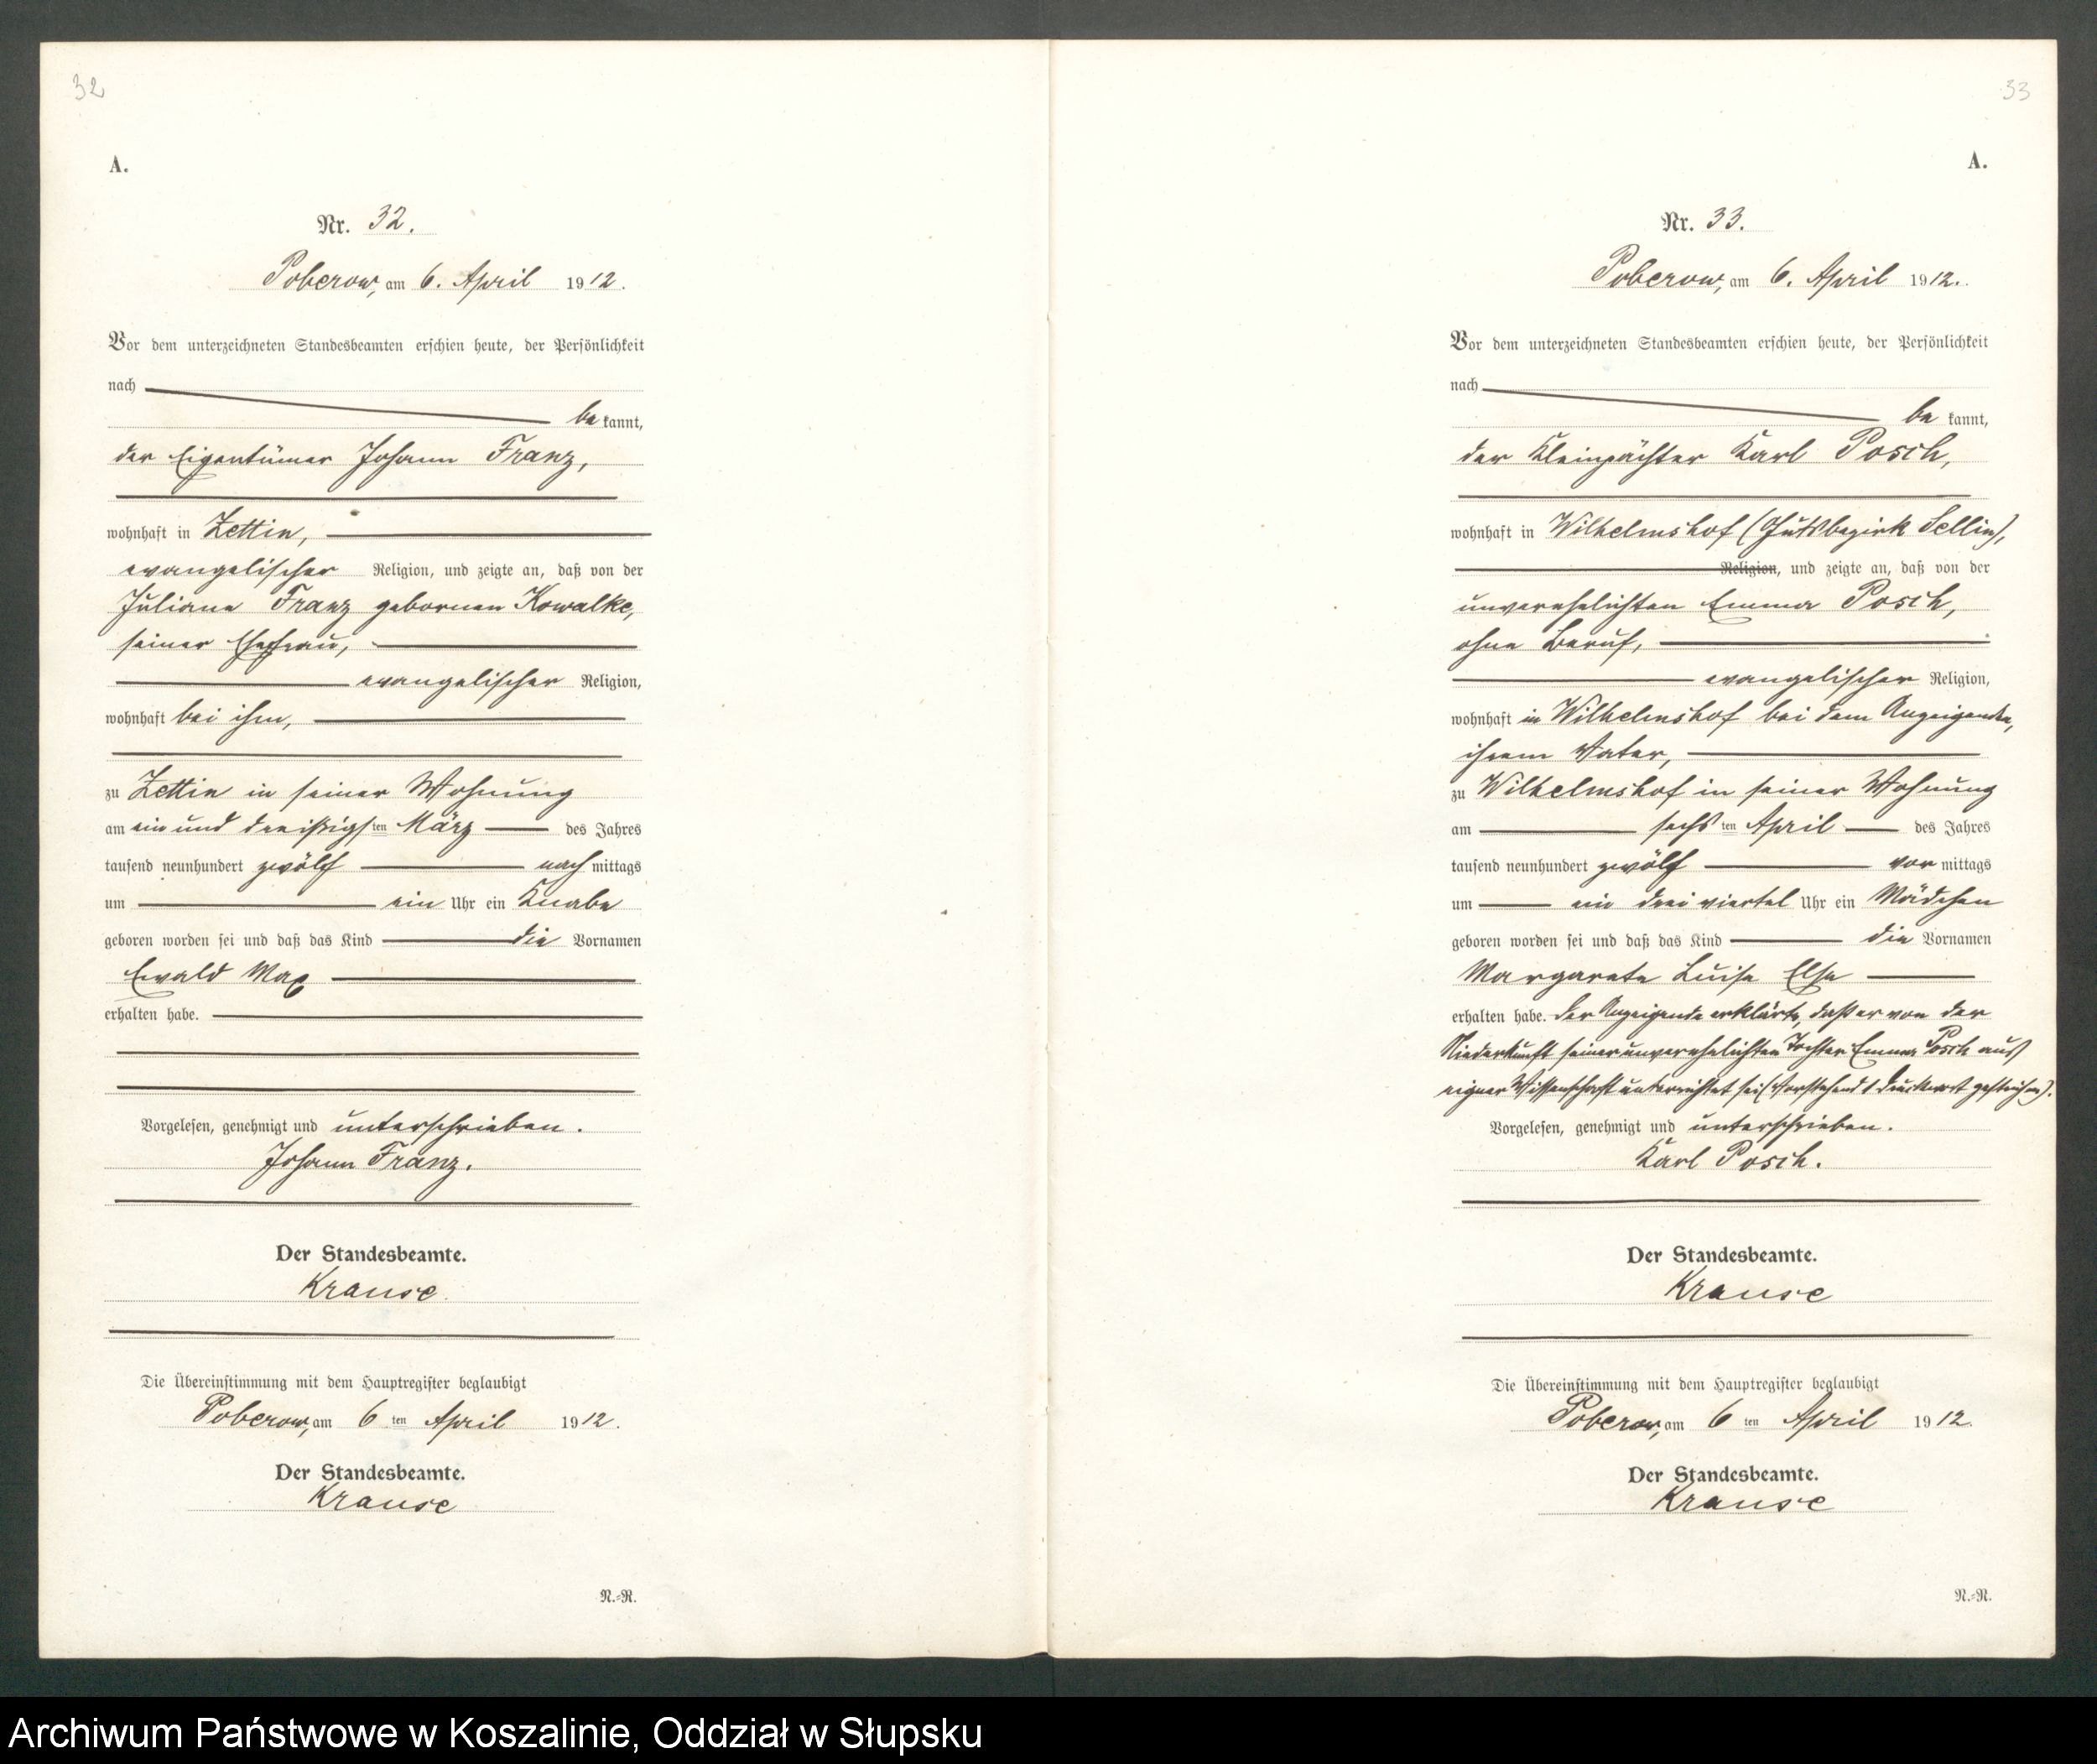 32
A.
Nr. 32.
Poberow, am 6. April 1912.
Vor dem unterzeichneten Standesbeamten erschien heute, der Persönlichkeit
nach
be kannt,
der Eigentümer Johann Franz,
wohnhaft in Zettin,
evangelischer Religion, und zeigte an, daß von der
Juliane Franz gebornen Kowalke,
seiner Ehefrau,
evangelischer Religion,
wohnhaft bei ihm,
zu Zettin in seiner Wohnung
am ein und dreißigsten März des Jahres
tausend neunhundert zwölf nach mittags
um ein Uhr ein Knabe
geboren worden sei und daß das Kind die Vornamen
Ewald Max
erhalten habe.
Vorgelesen, genehmigt und unterschrieben.
Johann Franz.
Der Standesbeamte.
Krause.
Die Übereinstimmung mit dem Hauptregister beglaubigt
Poberow, am 6 ten April 1912.
Der Standesbeamte.
Krause
N.=R.
33
A.
Nr. 33.
Poberow, am 6. April 1912.
Vor dem unterzeichneten Standesbeamten erschien heute, der Persönlichkeit
nach
be kannt,
der Kleinpächter Karl Posch,
wohnhaft in Wilhelmshof (Gutsbezirk Sellin),
Religion, und zeigte an, daß von der
unverehelichten Emma Posch,
ohne Beruf,
evangelischer Religion,
wohnhaft in Wilhelmshof bei dem Anzeigenden,
ihrem Vater,
zu Wilhelmshof in seiner Wohnung
am sechs ten April des Jahres
tausend neunhundert zwölf vor mittags
um ein drei viertel Uhr ein Mädchen
geboren worden sei und daß das Kind die Vornamen
Margarete Luise Else
erhalten habe. Der Anzeigende erklärte, daß er von der
Niederkunft seiner unverehelichten Tochter Emma Posch aus
eigner Wissenschaft unterrichtet sei (Vorstehend 1 Druckwort gestrichen).
Vorgelesen, genehmigt und unterschrieben.
Karl Posch.
Der Standesbeamte.
Krause
Die Übereinstimmung mit dem Hauptregister beglaubigt
Poberow, am 6 ten April 1912.
Der Standesbeamte.
Krause
N.=R.
Archiwum Państwowe w Koszalinie, Oddział w Słupsku